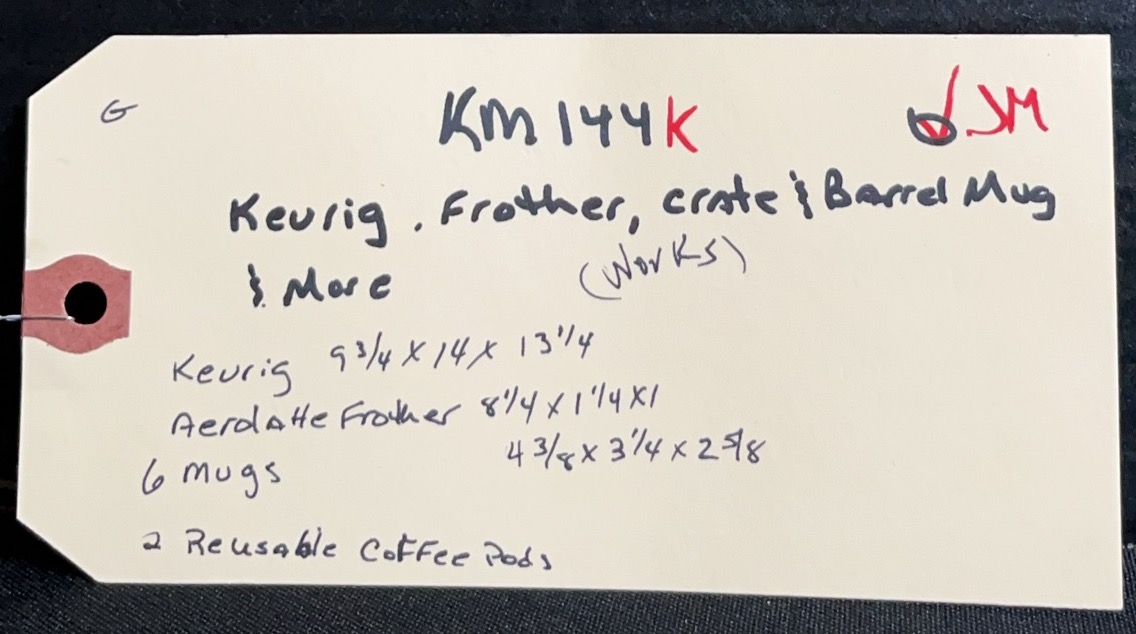 G
KM144K
JM
Keurig, Frother, Crate & Barrel Mug
& More
(Works)
Keurig 9 3/4 x 14 x 13 1/4
Aerolatte Frother 8 1/4 x 1 1/4 x 1
4 3/8 x 3 1/4 x 2 5/8
6 Mugs
2 Reusable Coffee Pods